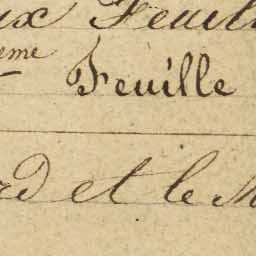 ux Feuill
eme Feuille
rd et le M